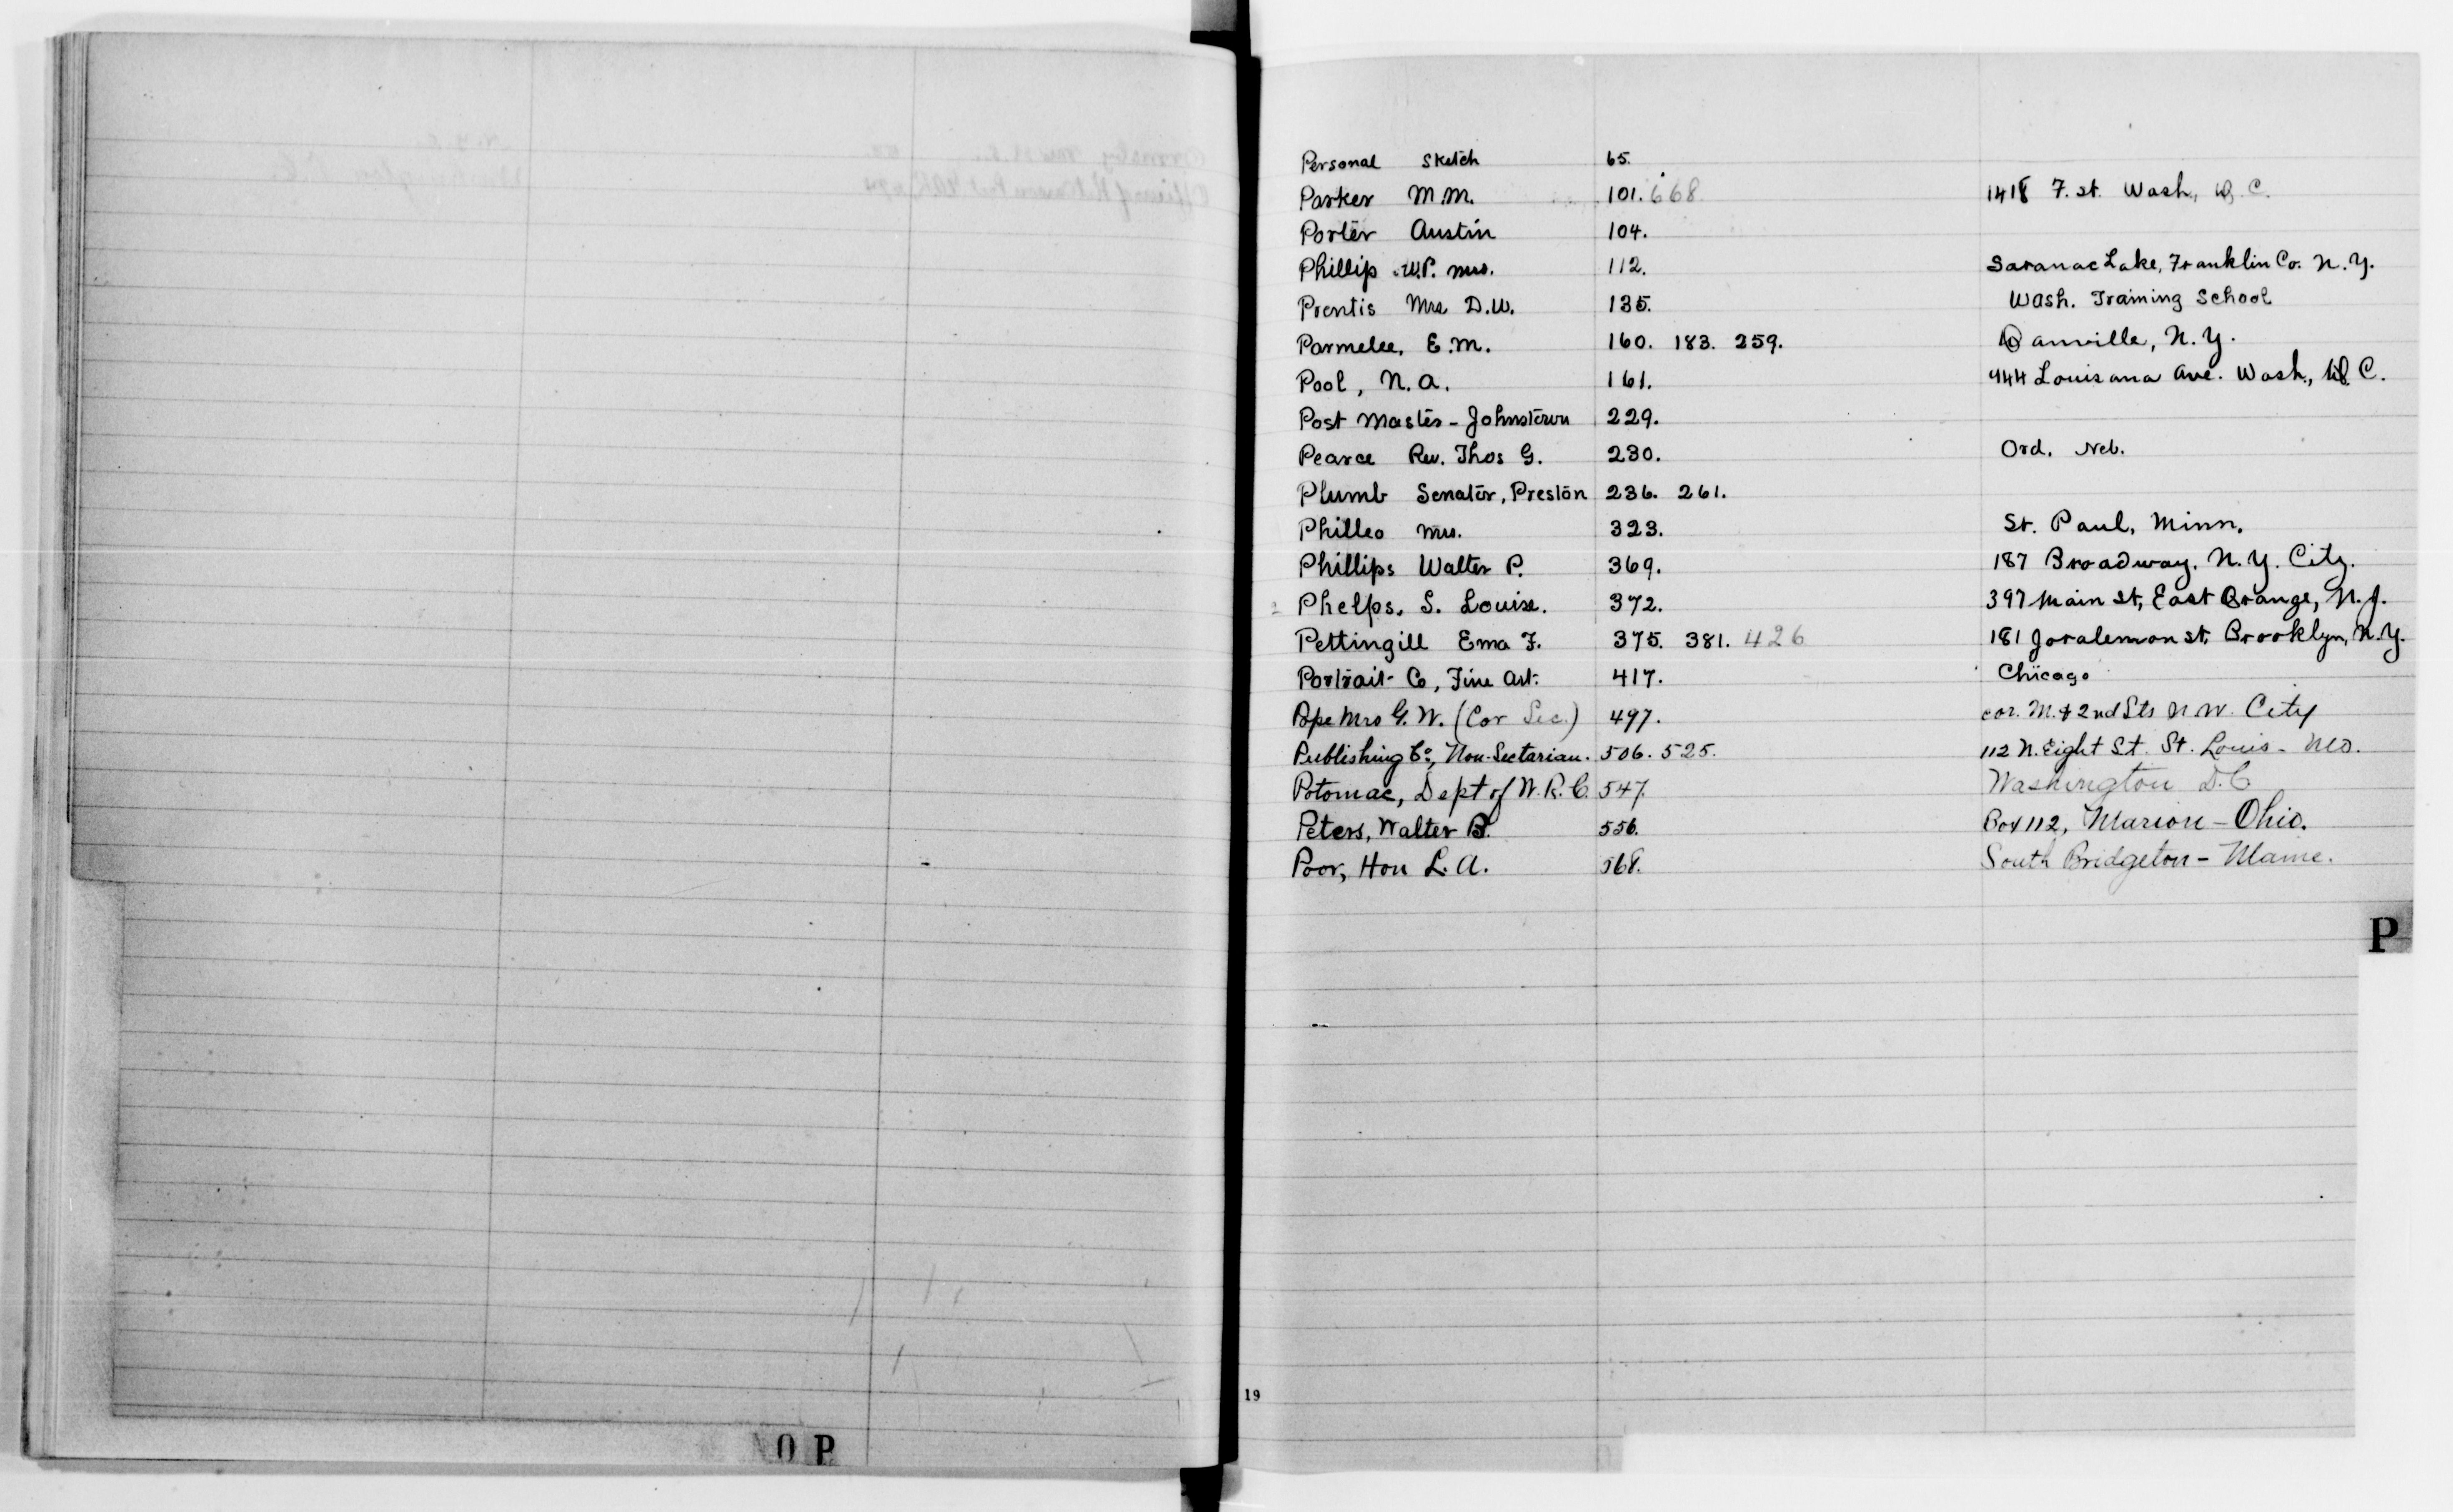 Personal Sketch 65.
Parker M.M. 101. 668 1418 F. st. Wash., D. C.
Porter Austin 104.
Phillip W.P. Mrs. 112. Saranac Lake, Franklin Co. N.Y.
Prentis Mrs D.W. 135. Wash. Training School
Parmelee, E.M. 160. 183. 259. Danville, N.Y.
Pool, N.A. 161. 444 Louisana Ave. Wash., D. C.
Post Master - Johnstown 229.
Pearce Rev. Thos G. 230. Ord. Neb.
Plumb Senator, Preston 236. 261.
Philleo Mrs. 323. St. Paul, Minn.
Phillips Walter P. 369. 187 Broadway. N.Y. City.
Phelps. S. Louise. 372. 397 Main St, East Orange, N.J.
Pettingill Ema F. 375. 381. 426 181 Joralemon st. Brooklyn, N.Y.
Portrait Co, Fine Art. 417. Chicago
Pope Mrs G.W. (Cor Sec.) 497. cor. M. & 2nd Sts N.W. City
Publishing Co, Non-Sectarian. 506. 525. 112 N. Eight St. St. Louis - Mo.
Potomac, Dept of W.R.C. 547. Washington D.C
Peters, Walter B. 556. Box 112, Marion - Ohio.
Poor, Hon L.A. 568. South Bridgeton - Maine.
P
19
O P